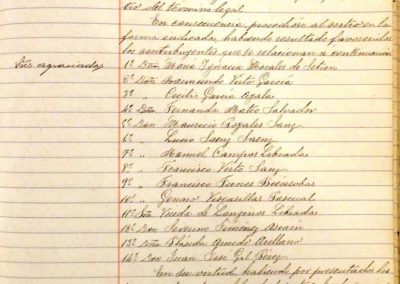 tro del termino legal.
En consecuencia, procedióse al sorteo en la
forma indicada, habiendo resultado favorecidos
los contribuyentes que se relacionan a continuación:
Sres agraciados
1º Doña María Ignacia Morales de Setien
2º Don Maximundo Verto García
3º Cecilio García
4º Doña Fernanda Mateo Salvador
5º Don Mauricio Rozales Sanz
6º " Lucio Saenz Saenz
7º " Manuel Campos Librada
8º " Francisco Verto Sanz
9º " Francisco Funes
10º " Genaro Pascual
11º Sra Viuda de Longinos Librada
12º Don Severino Jiménez
13º Doña Arellano
14º Don Juan José Gil Pérez
En su vertud, habiendo por